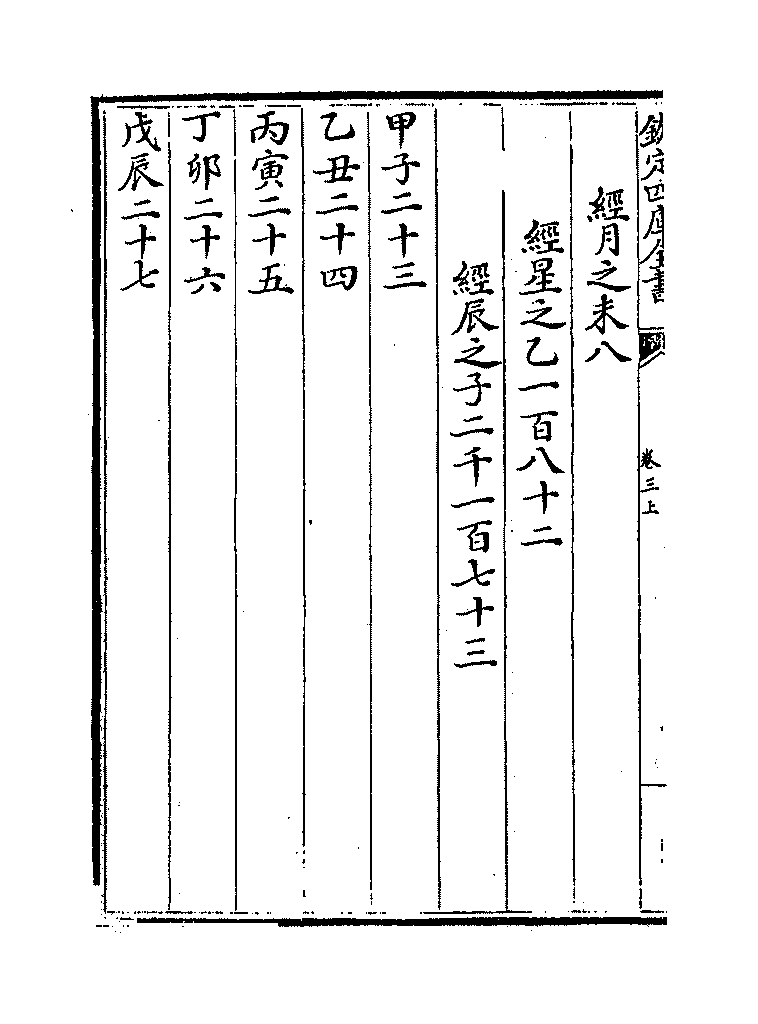 欽定四庫全書
卷三上
經月之未八
經星之乙一百八十二
經辰之子二千一百七十三
甲子二十三
乙丑二十四
丙寅二十五
丁卯二十六
戊辰二十七